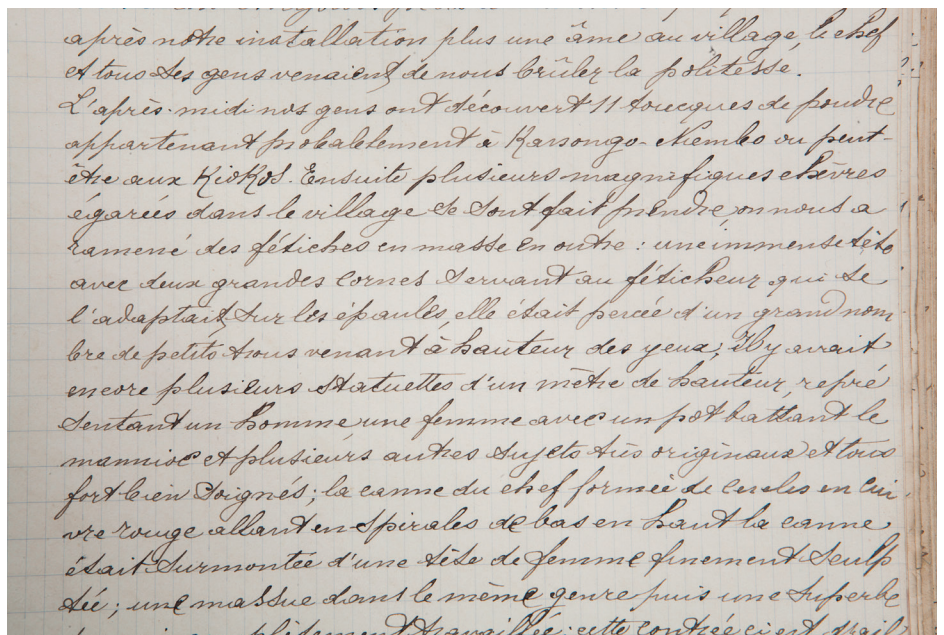 après notre installation plus une âme au village, le chef
et tous ses gens venaient de nous brûler la politesse.
L'après-midi nos gens ont découvert 11 toucques de poudre
appartenant probablement à Kasongo-Niembo ou peut-
être aux Kiokos. Ensuite plusieurs magnifiques chèvres
égarées dans le village se sont fait prendre on nous a
ramené des fétiches en masse en outre : une immense tête
avec deux grandes cornes servant au féticheur qui se
l'adaptait sur les épaules, elle était percée d'un grand nom
bre de petits trous venant à hauteur des yeux, Il y avait
encore plusieurs statuettes d'un mètre de hauteur, repré
sentant un homme une femme avec un pot battant le
mannioc et plusieurs autres sujets très originaux et tous
fort bien soignés; la canne du chef formée de cercles en cui
vre rouge allant en spirales de bas en haut la canne
était surmontée d'une tête de femme finement sculp
tée; une massue dans le même genre puis une superbe
travaillée; cette contrée ci est